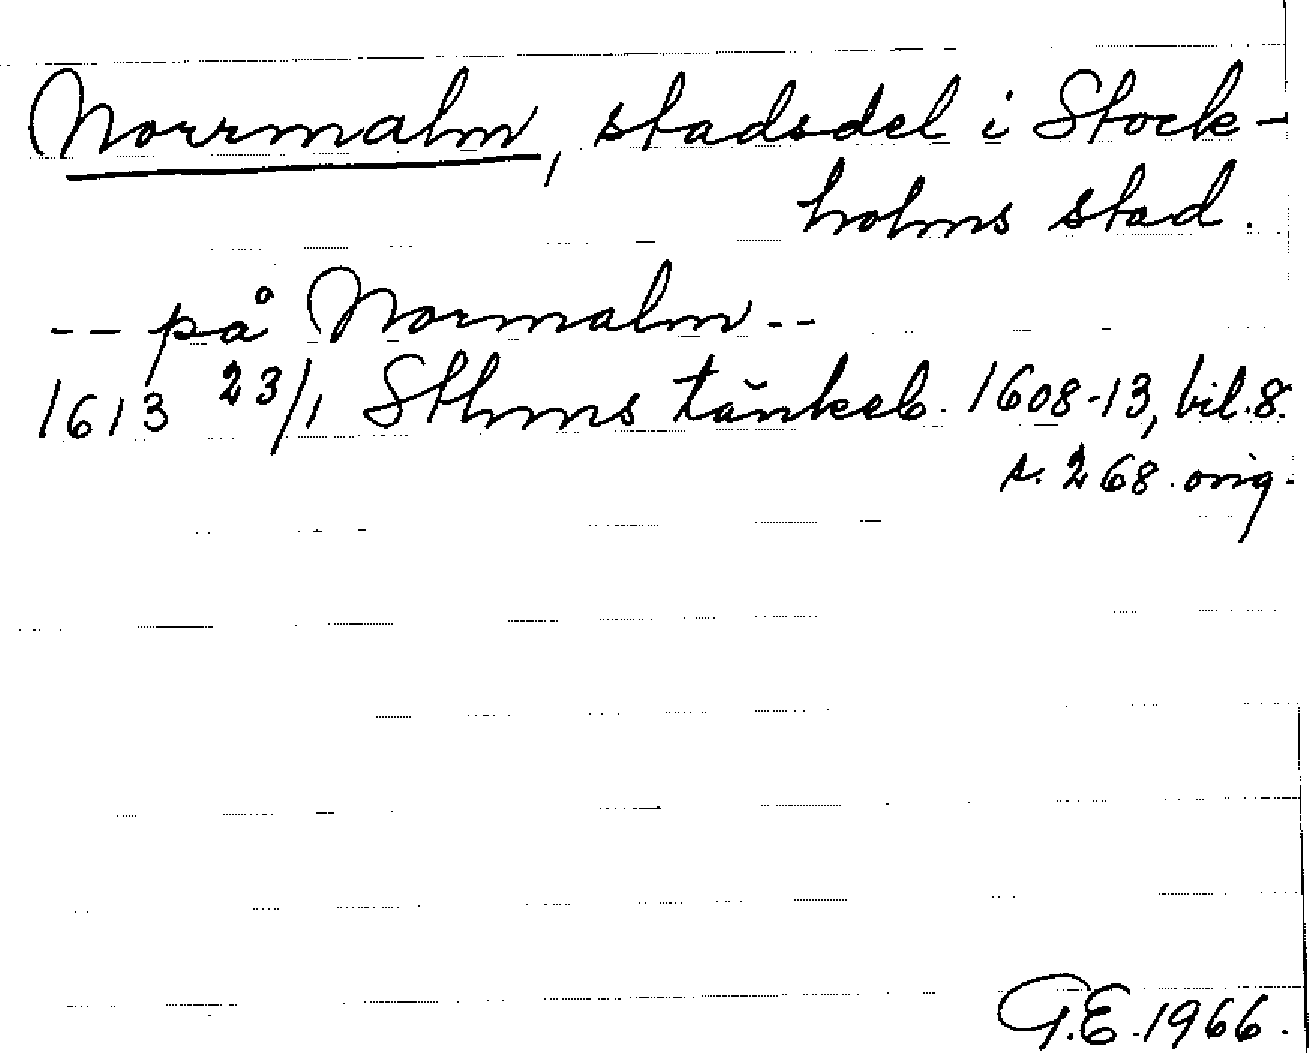 Norrmalm, stadsdel i Stock-
holms stad.
-- på Normalm --
1613 23/1 Sthms tänkeb. 1608-13, bil. 8.
s. 268. orig.
G.E. 1966.